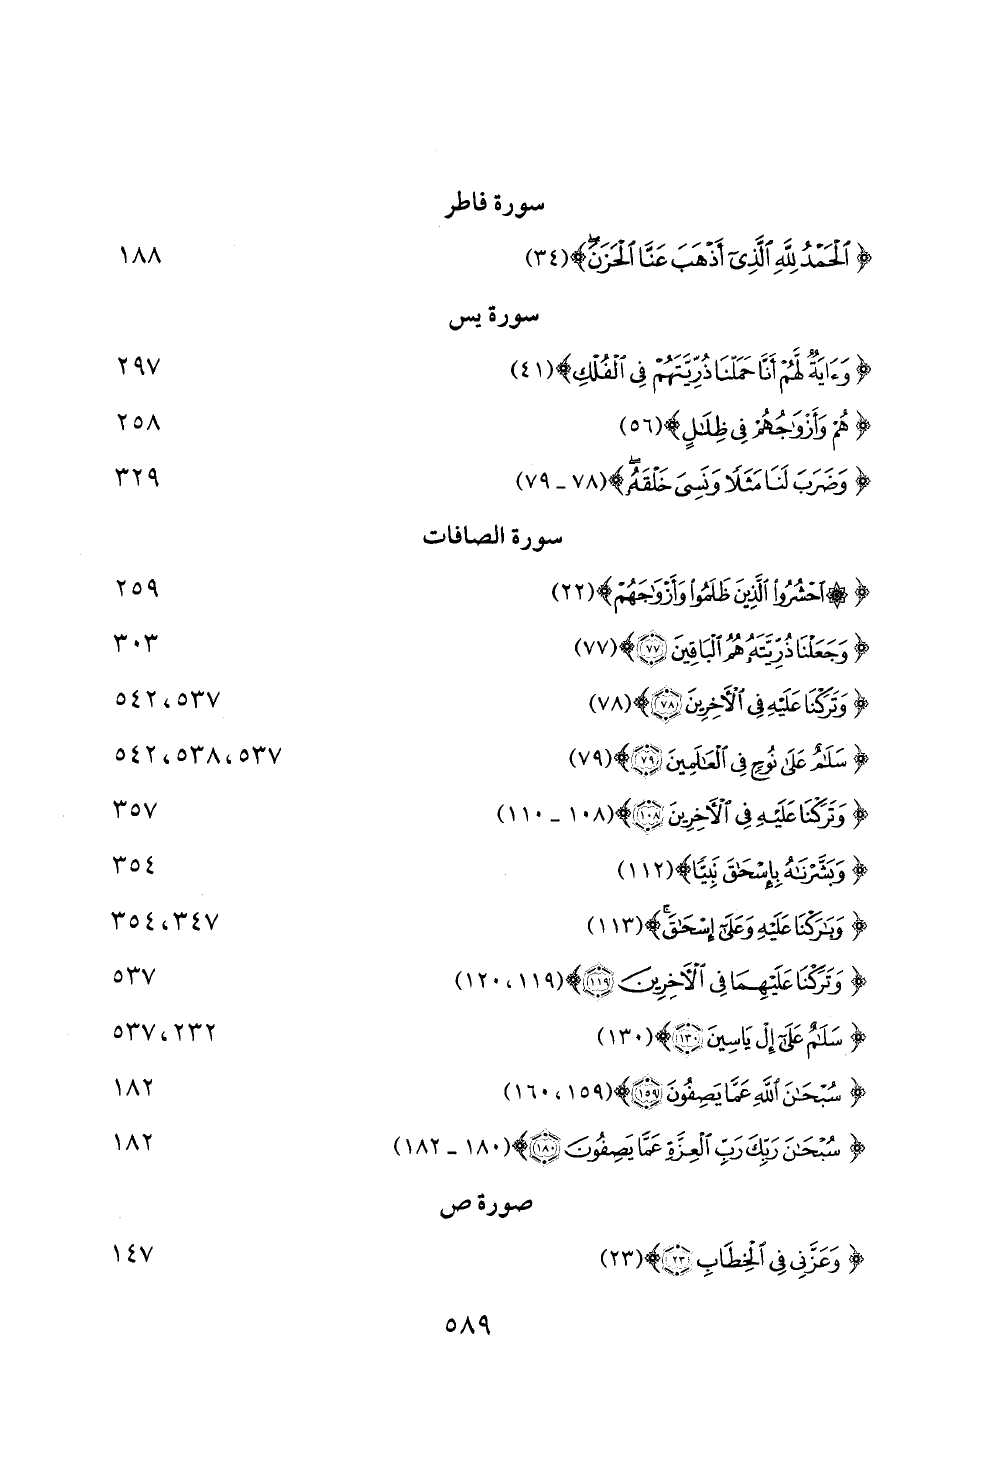 سورة فاطر
﴿ ٱلْحَمْدُ لِلَّهِ ٱلَّذِىٓ أَذْهَبَ عَنَّا ٱلْحَزَنَۖ﴾(٣٤) ١٨٨
سورة يس
﴿ وَءَايَةٌ لَّهُمْ أَنَّا حَمَلْنَا ذُرِّيَّتَهُمْ فِى ٱلْفُلْكِ﴾(٤١) ٢٩٧
﴿ هُمْ وَأَزْوَٰجُهُمْ فِى ظِلَٰلٍ﴾(٥٦) ٢٥٨
﴿ وَضَرَبَ لَنَا مَثَلًا وَنَسِىَ خَلْقَهُۥۖ﴾(٧٨ ـ ٧٩) ٣٢٩
سورة الصافات
﴿ ۞ ٱحْشُرُوا۟ ٱلَّذِينَ ظَلَمُوا۟ وَأَزْوَٰجَهُمْ﴾(٢٢) ٢٥٩
﴿ وَجَعَلْنَا ذُرِّيَّتَهُۥ هُمُ ٱلْبَاقِينَ ٧٧﴾(٧٧) ٣٠٣
﴿ وَتَرَكْنَا عَلَيْهِ فِى ٱلْأَخِرِينَ ٧٨﴾(٧٨) ٥٣٧، ٥٤٢
﴿ سَلَٰمٌ عَلَىٰ نُوحٍ فِى ٱلْعَٰلَمِينَ ٧٩﴾(٧٩) ٥٣٧، ٥٣٨، ٥٤٢
﴿ وَتَرَكْنَا عَلَيْهِ فِى ٱلْأَخِرِينَ ١٠٨﴾(١٠٨ ـ ١١٠) ٣٥٧
﴿ وَبَشَّرْنَٰهُ بِإِسْحَٰقَ نَبِيًّا﴾(١١٢) ٣٥٤
﴿ وَبَٰرَكْنَا عَلَيْهِ وَعَلَىٰٓ إِسْحَٰقَۚ﴾(١١٣) ٣٤٧، ٣٥٤
﴿ وَتَرَكْنَا عَلَيْهِمَا فِى ٱلْأَخِرِينَ ١١٩﴾(١١٩، ١٢٠) ٥٣٧
﴿ سَلَٰمٌ عَلَىٰٓ إِلْ يَاسِينَ ١٣٠﴾(١٣٠) ٢٣٢، ٥٣٧
﴿ سُبْحَٰنَ ٱللَّهِ عَمَّا يَصِفُونَ ١٥٩﴾(١٥٩، ١٦٠) ١٨٢
﴿ سُبْحَٰنَ رَبِّكَ رَبِّ ٱلْعِزَّةِ عَمَّا يَصِفُونَ ١٨٠﴾(١٨٠ ـ ١٨٢) ١٨٢
صورة ص
﴿ وَعَزَّنِى فِى ٱلْخِطَابِ ٢٣﴾(٢٣) ١٤٧
٥٨٩